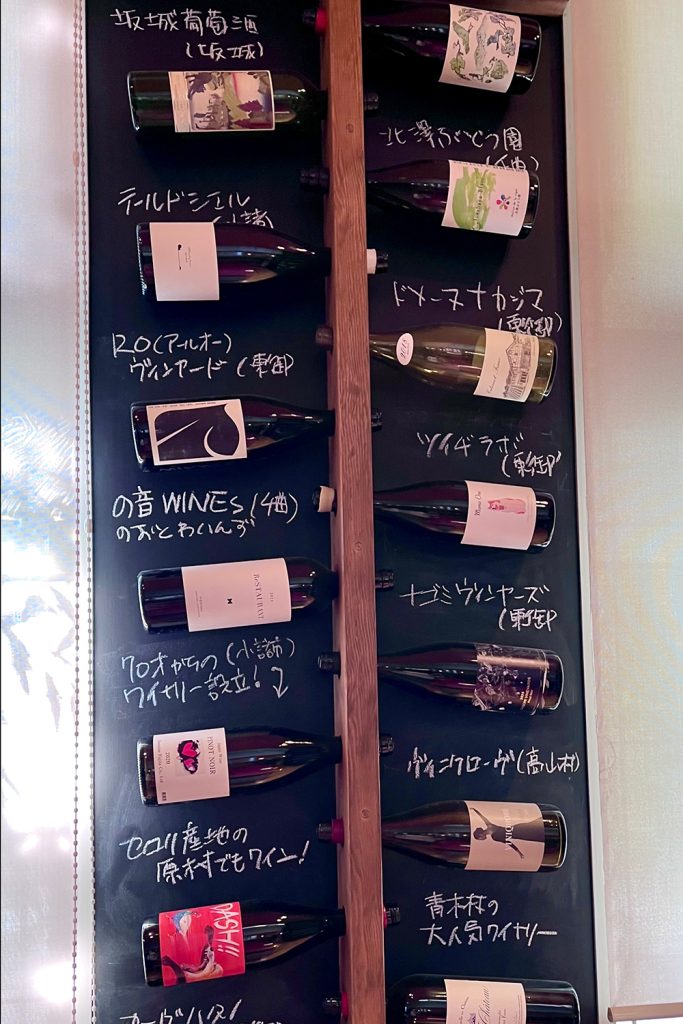 坂城葡萄酒
(坂城)
テールドシエル
(小諸
RO(アールオー)
ヴィンヤード(東御
の音WINEs(千曲)
のおとわいんず
ReSTAURANT
70才からの(小諸市)
ワイナリー設立!
PINOT NOIR
2020
セロリ産地の
原村でもワイン!
DASH!!
北澤ぶどう園
ドメーヌナカジマ
(東御)
ツイヂラボ
(東御
ナゴミヴィンヤーズ
(東御
ヴィンクローヴ(高山村)
青木村の
大人気ワイナリー
Château